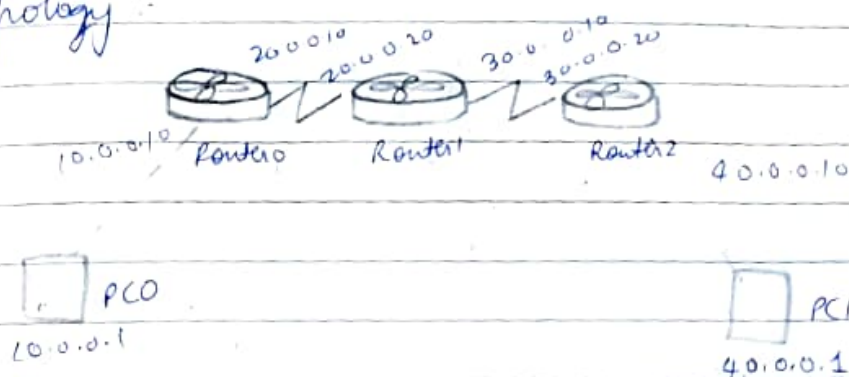 20.0.0.10
20.0.0.20
30.0.0.10
30.0.0.20
10.0.0.10
Router0
Router1
Router2
40.0.0.10
PC0
10.0.0.1
40.0.0.1